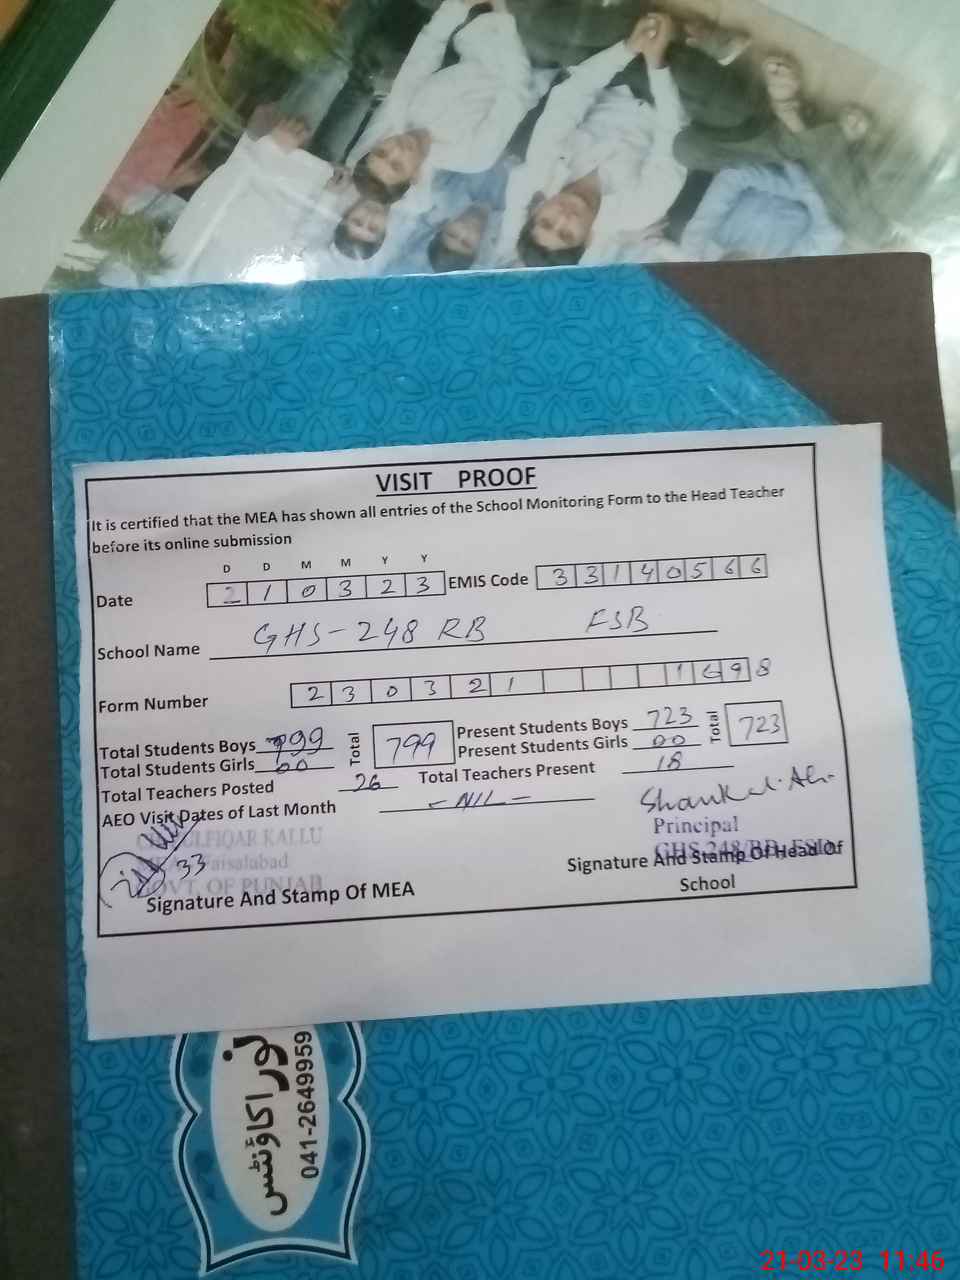 VISIT PROOF
It is certified that the MEA has shown all entries of the School Monitoring Form to the Head Teacher
before its online submission
D D M M Y Y
Date 210323 EMIS Code 33140566
School Name GHS-248 RB FSB
Form Number 230321 1698
Total Students Boys 799 Total 799 Present Students Boys 723 Total 723
Total Students Girls 00 Present Students Girls 00
Total Teachers Posted 26 Total Teachers Present 18
AEO Visit Dates of Last Month - NIL -
Principal
GHS 248/RB
KALLU
Faisalabad
33
GOVT. OF PUNJAB
Signature And Stamp Of MEA
Signature And Stamp Of Head Of
School
نور اکاؤنٹس
041-2649959
21-03-23 11:46